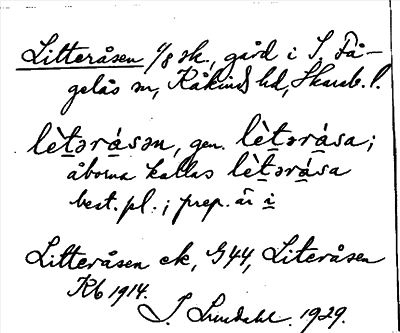 Litteråsen 1/8 sk., gård i S. Få-
gelås sn, Kåkinds hd, Skarab. l.
lètərásən, gen. lètərása;
åborna kallas lètərása
best. pl.; prep. är i
Litteråsen ek, G44, Literåsen
Rb 1914.
S. Lundahl. 1929.